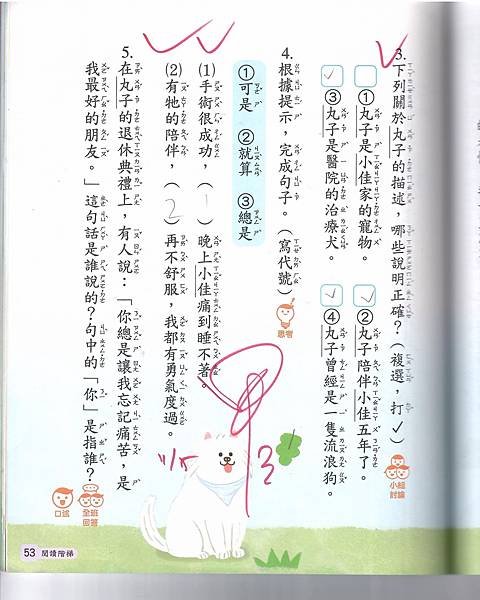 3. 下列關於丸子的描述，哪些說明正確？（複選，打✓）
①丸子是小佳家的寵物。
②丸子陪伴小佳五年了。
✓ ③丸子是醫院的治療犬。
✓ ④丸子曾經是一隻流浪狗。
小組討論
4. 根據提示，完成句子。（寫代號）
思考
①可是 ②就算 ③總是
(1)手術很成功，（1）晚上小佳痛到睡不著。
(2)有牠的陪伴，（2）再不舒服，我都有勇氣度過。
5. 在丸子的退休典禮上，有人說：「你總是讓我忘記痛苦，是
我最好的朋友。」這句話是誰說的？句中的「你」是指誰？
口述
全班回答
53 閱讀階梯